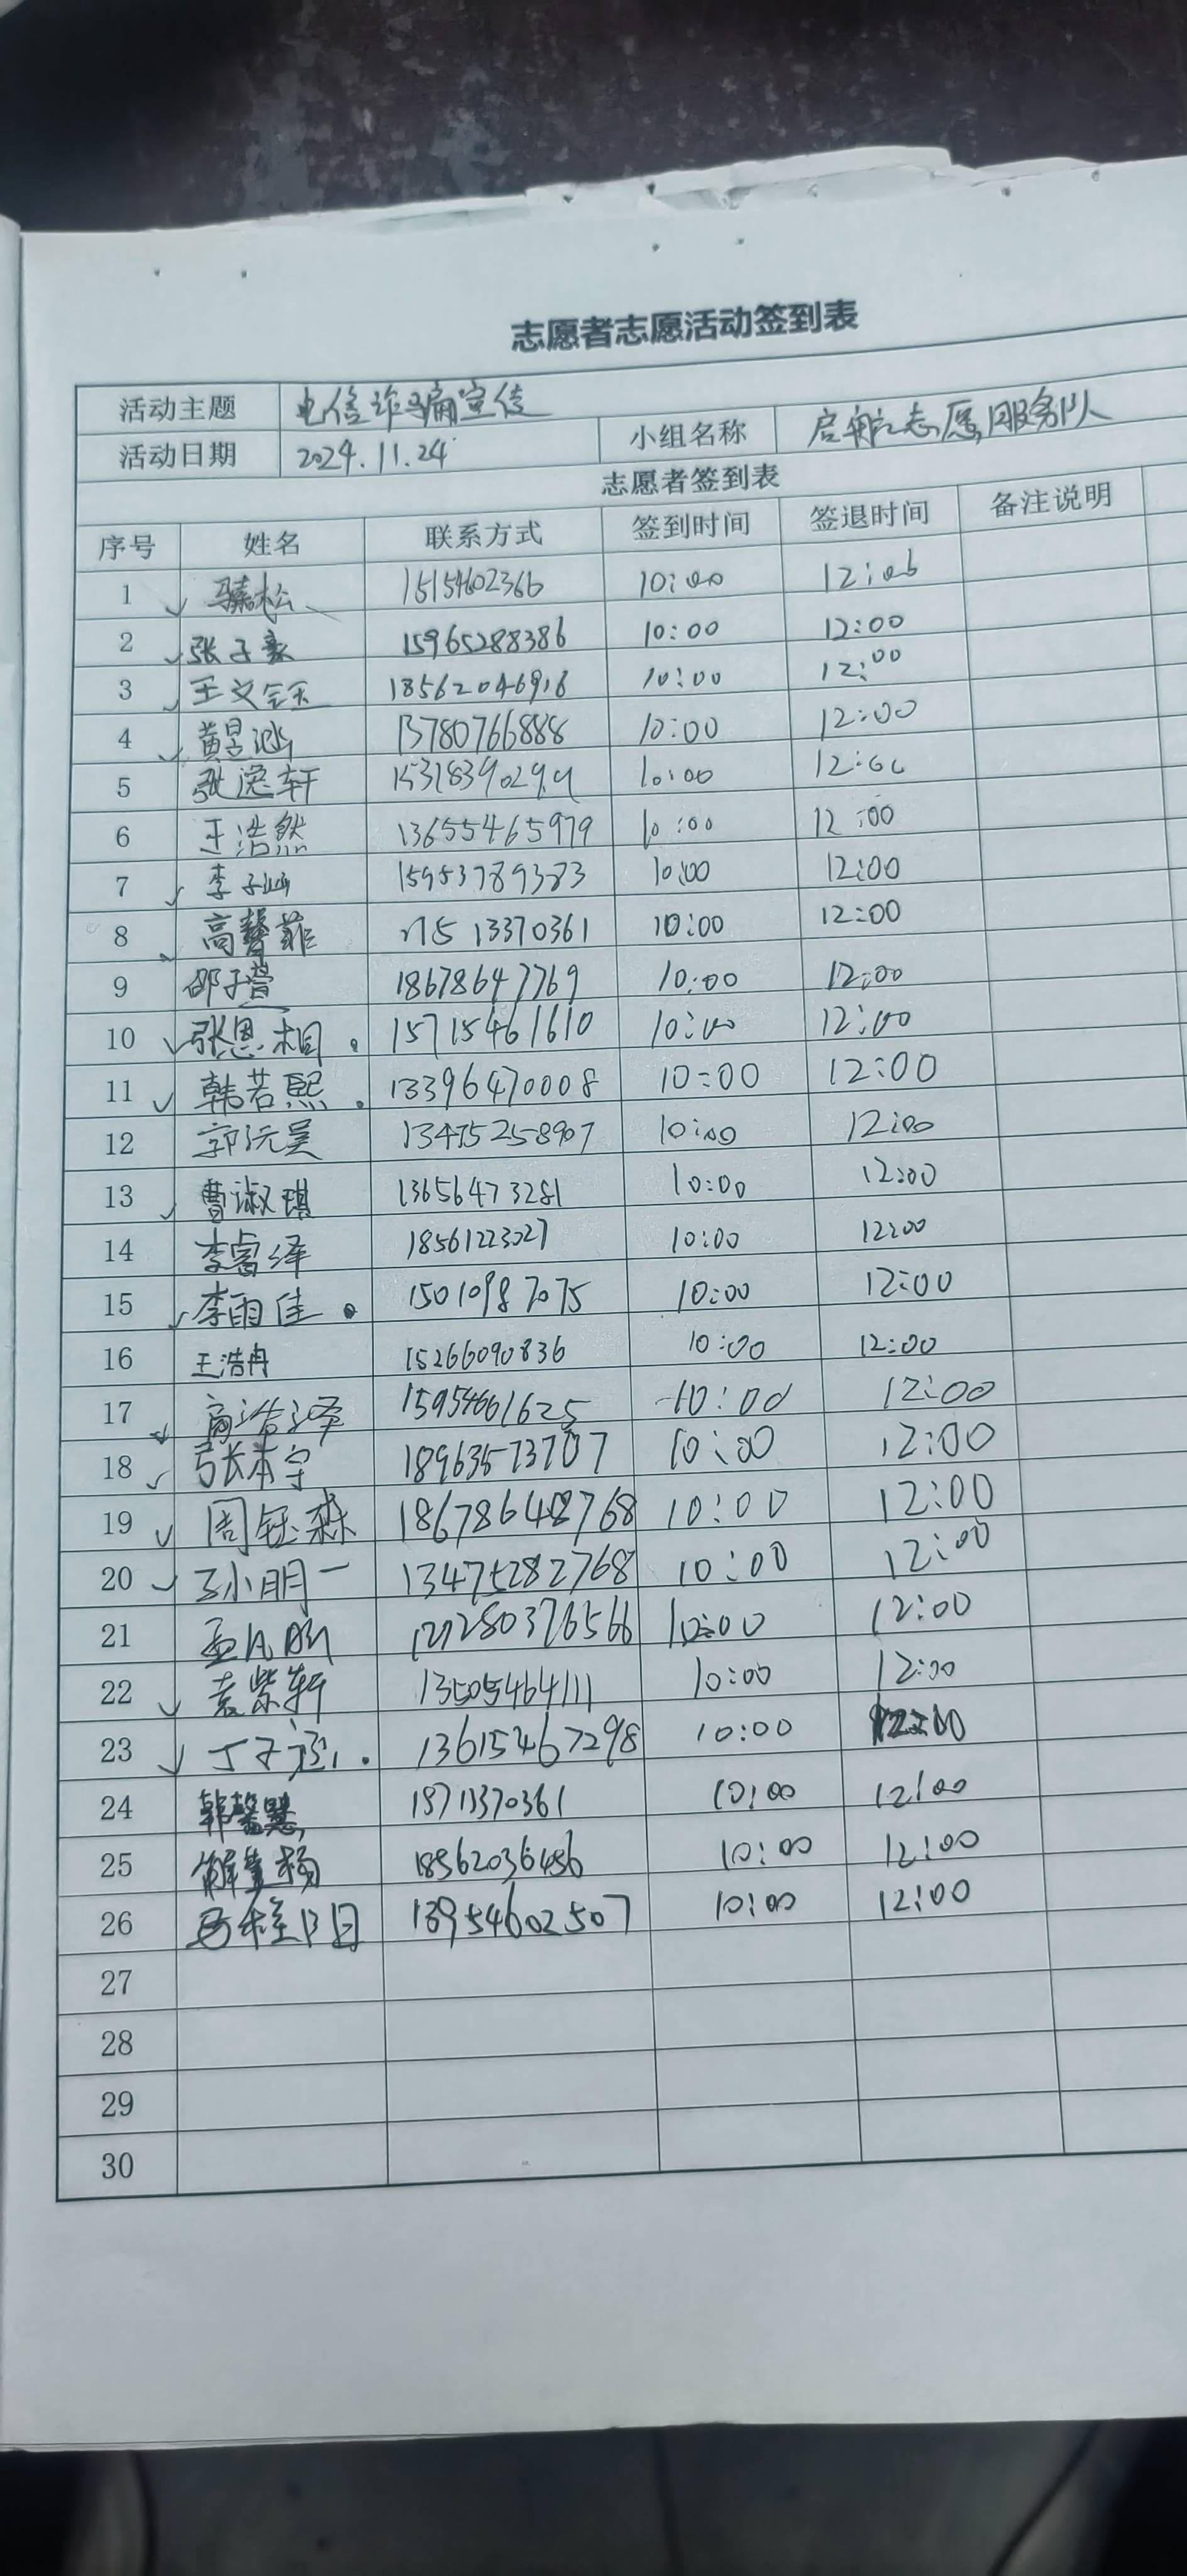 志愿者志愿活动签到表
活动主题 电信诈骗宣传
活动日期 2024.11.24 小组名称 启航志愿服务队
志愿者签到表
序号 姓名 联系方式 签到时间 签退时间 备注说明
1 10:00
2 张子豪 15965288386 10:00 12:00
3 王文钰 18562046916 10:00 12:00
4 黄昱涵 13780766888 10:00 12:00
5 张逸轩 10:00 12:00
6 王浩然 13655465979 10:00 12:00
7 李子屿 15953789383 10:00 12:00
8 高馨菲 13370361 10:00 12:00
9 邵子萱 18678647769 10:00 12:00
10 张恩桐 15715461610 10:00 12:00
11 韩若熙 13396470008 10:00 12:00
12 郭沅昊 13475258907 10:00 12:00
13 曹淑琪 13656473281 10:00 12:00
14 李睿泽 18561223027 10:00 12:00
15 李雨佳 15010987075 10:00 12:00
16 王浩冉 15266090836 10:00 12:00
17 高浩泽 15954661625 10:00 12:00
18 张本宇 10:00 12:00
19 周钰森 10:00 12:00
20 13475282768 10:00 12:00
21 10:00 12:00
22 袁紫轩 13505464111 10:00 12:00
23 13615467298 10:00 12:00
24 韩馨慧 18711370361 10:00 12:00
25 18562036456 10:00 12:00
26 13954602507 10:00 12:00
27
28
29
30